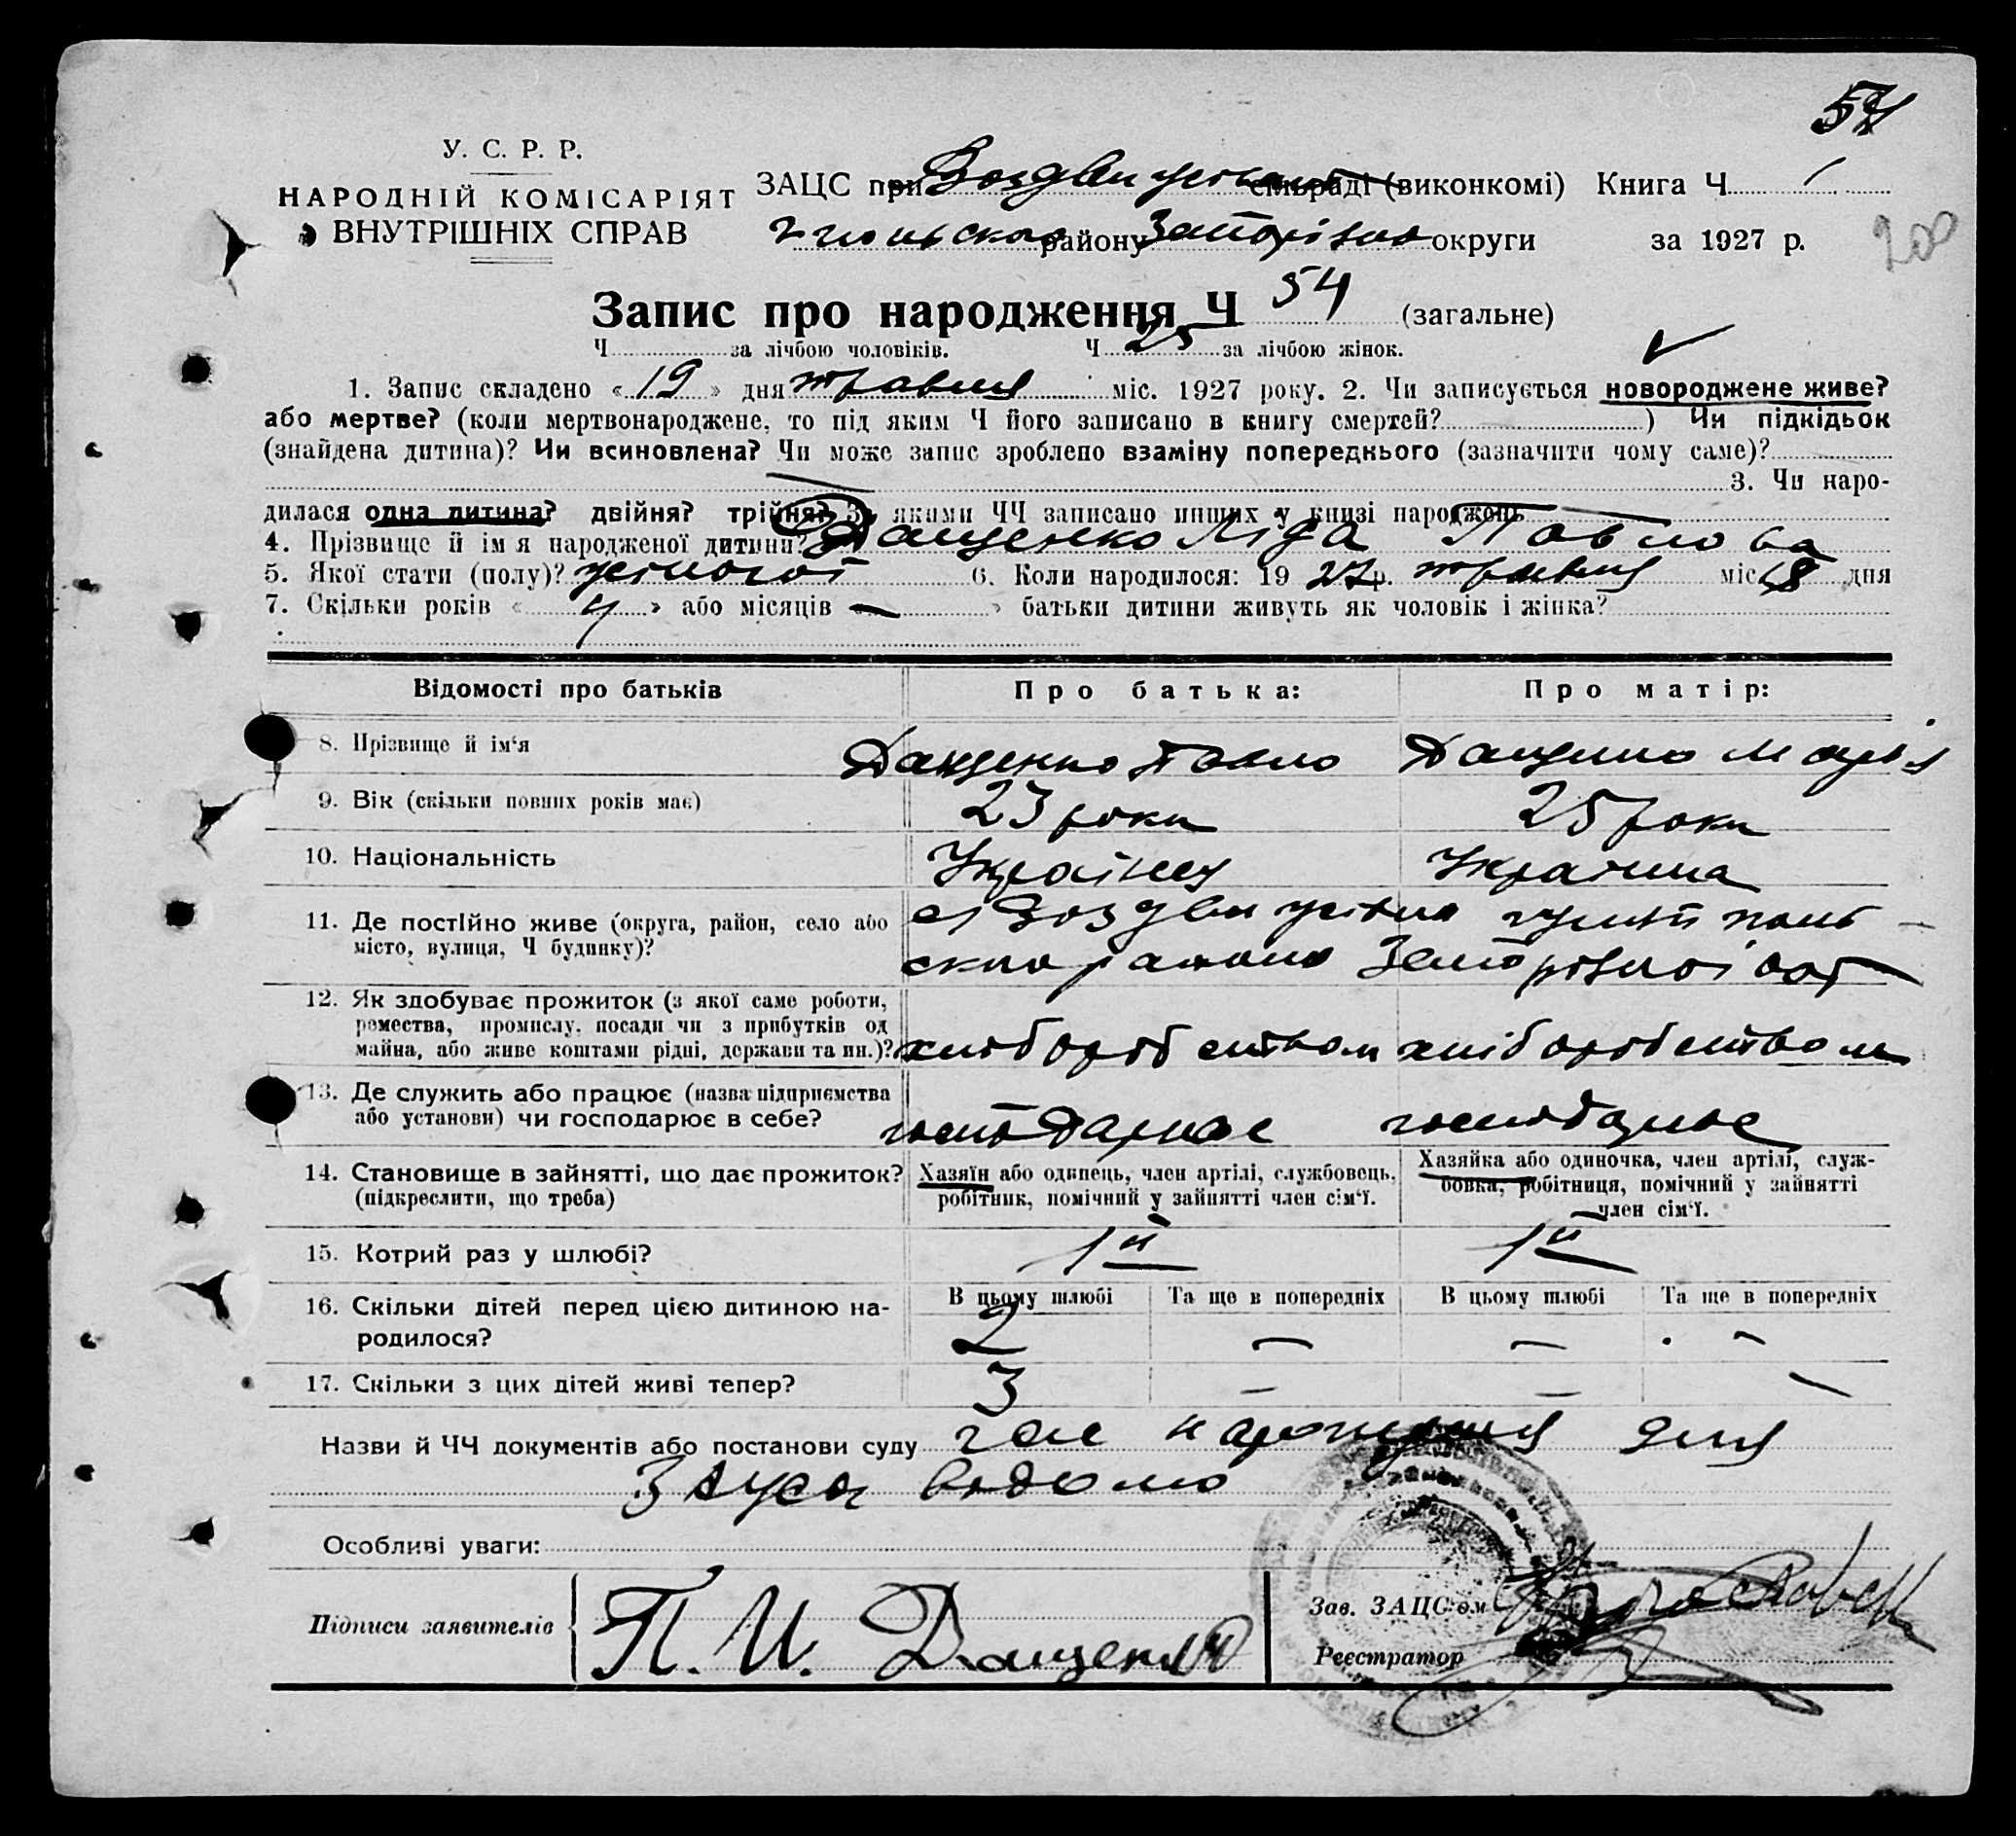 54
У. С. Р. Р.
НАРОДНІЙ КОМІСАРІЯТ
ВНУТРІШНІХ СПРАВ
ЗАЦС при сільраді (виконкомі) Книга Ч 1
району Запорізько округи за 1927 р.
200
Запис про народження Ч 54 (загальне)
Ч за лічбою чоловіків. Ч 25 за лічбою жінок.
1. Запис складено « 19 » дня травня міс. 1927 року. 2. Чи записується новороджене живе?
або мертве? (коли мертвонароджене, то під яким Ч його записано в книгу смертей? ) Чи підкідьок
(знайдена дитина)? Чи всиновлена? Чи може запис зроблено взаміну попереднього (зазначити чому саме)?
3. Чи наро-
дилася одна дитина? двійня? трійня? З якими ЧЧ записано инших у книзі народжень
4. Прізвище й ім я народженої дитини? Дащенко Ліда Павлова
5. Якої стати (полу)? жіночої 6. Коли народилося: 19 27 р. травня міс. 18 дня
7. Скільки років « 4 » або місяців « — » батьки дитини живуть як чоловік і жінка?
Відомості про батьків Про батька: Про матір:
8. Прізвище й ім‘я Дащенко Павло Дащенко Марія
9. Вік (скільки повних років має) 23 роки 25 роки
10. Національність Українец Українка
11. Де постійно живе (округа, район, село або
місто, вулиця, Ч будинку)?
району Запорізької окр
12. Як здобуває прожиток (з якої саме роботи,
ремества, промислу, посади чи з прибутків од
майна, або живе коштами рідні, держави та ин.)? хліборобством хліборобством
13. Де служить або працює (назва підприємства
або установи) чи господарює в себе? господарює господарює
14. Становище в зайнятті, що дає прожиток?
(підкреслити, що треба)
Хазяїн або одинець, член артілі, службовець,
робітник, помічний у зайнятті член сім‘ї.
Хазяйка або одиночка, член артілі, служ-
бовка, робітниця, помічний у зайнятті
член сім‘ї.
15. Котрий раз у шлюбі? 1й 1й
16. Скільки дітей перед цією дитиною на-
родилося?
В цьому шлюбі Та ще в попередніх В цьому шлюбі Та ще в попередніх
2 — — —
17. Скільки з цих дітей живі тепер? 3 — — —
Назви й ЧЧ документів або постанови суду
відомо
Особливі уваги:
Підписи заявителів П. И. Дащенко
Зав. ЗАЦС‘ом
Реєстратор